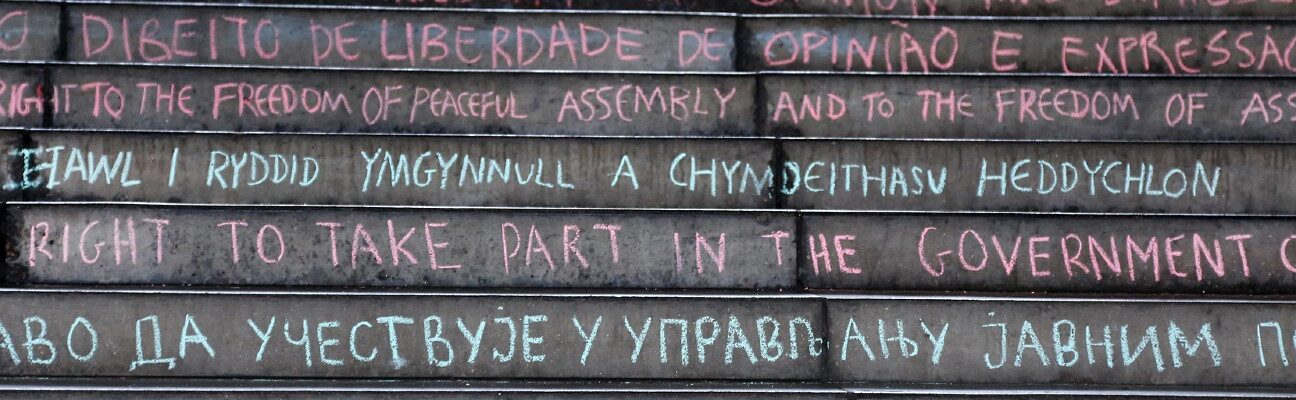 DIBEITO DE LIBERDADE DE OPINIÃO E EXPRESSÃO
RIGHT TO THE FREEDOM OF PEACEFUL ASSEMBLY AND TO THE FREEDOM OF ASS
HAWL I RYDDID YMGYNNULL A CHYMDEITHASU HEDDYCHLON
RIGHT TO TAKE PART IN THE GOVERNMENT O
АВО ДА УЧЕСТВУЈЕ У УПРАВЉАЊУ ЈАВНИМ ПО